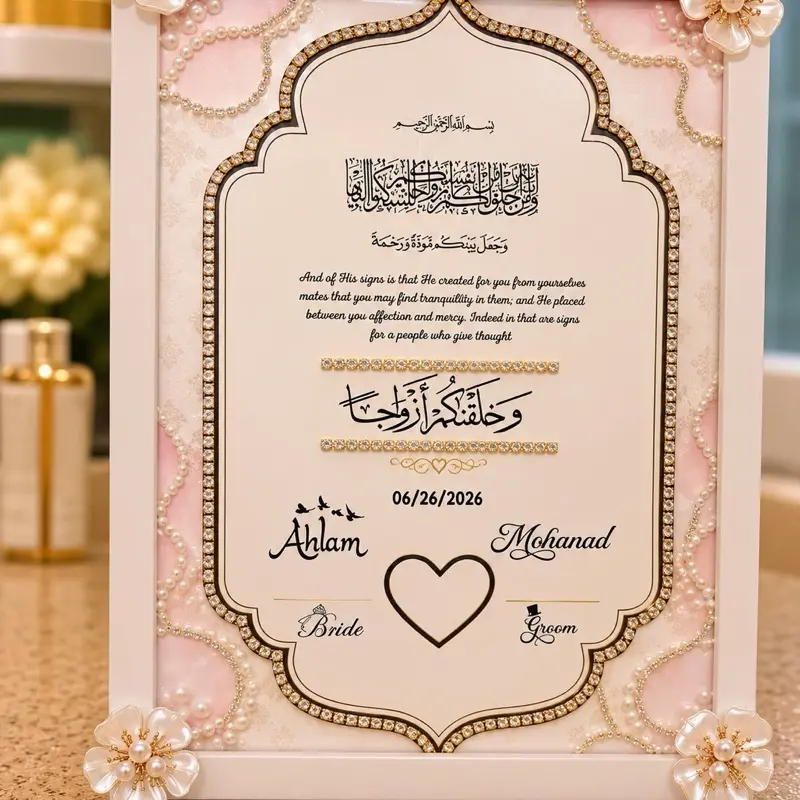 بسم الله الرحمن الرحيم
ومن آياته أن خلق لكم من أنفسكم أزواجا لتسكنوا إليها
وَجَعَلَ بَيْنَكُم مَّوَدَّةً وَرَحْمَةً
And of His signs is that He created for you from yourselves
mates that you may find tranquility in them; and He placed
between you affection and mercy. Indeed in that are signs
for a people who give thought
وَخَلَقْنَٰكُمْ أَزْوَاجًا
06/26/2026
Ahlam
Mohanad
Bride
Groom